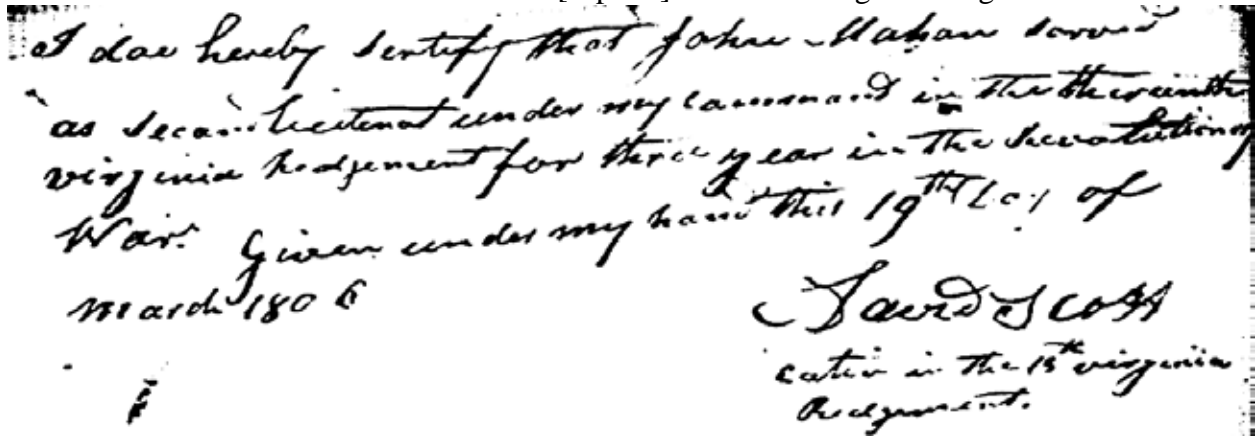 I doe hereby Sertify that John Mahan Served
as Secon lieutenat under my command in the therteenth
virginia Redgement for three year in the Revolutionary
War. Given under my hand this 19th Day of
March 1806
David Scott
Catin in the 13th virginia
Redgement.